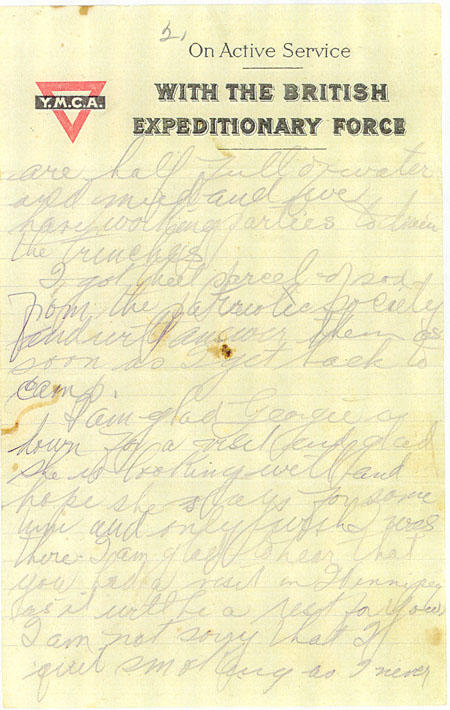 2,
On Active Service
Y.M.C.A.
WITH THE BRITISH
EXPEDITIONARY FORCE
are half full of water
and mud and we
have working parties to drain
the trenches
I got that parcel of
from the patriotic society
and will answer them as
soon as I get back to
camp.
I am glad Georgie
down for a visit and glad
she is looking well and
hope she stays for some
time and only wish I was
there I am glad to hear that
you had a visit in Winnipeg
as it will be a rest for you
I am not sorry that I
quit smoking as I never